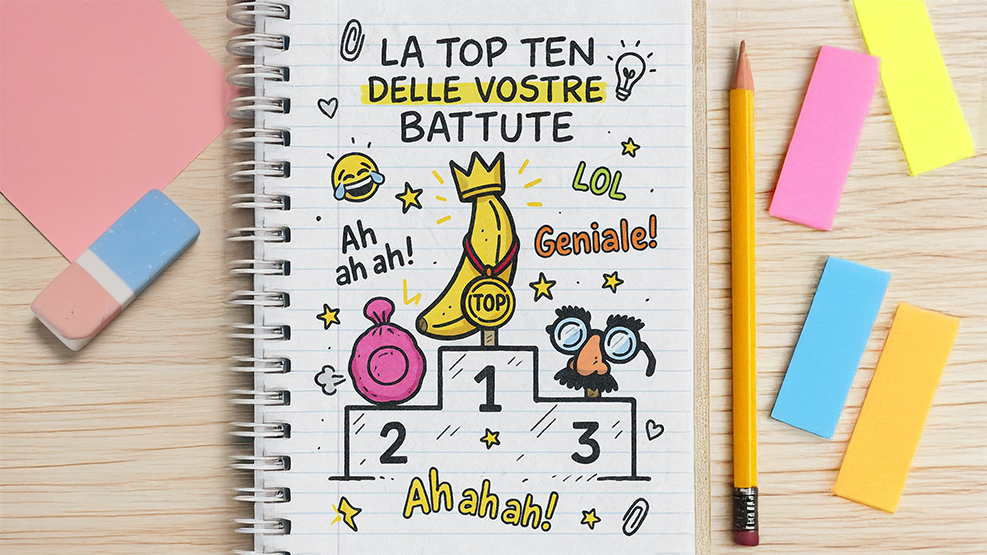 LA TOP TEN
DELLE VOSTRE
BATTUTE
LOL
Ah
ah ah!
Geniale!
TOP
1
2
3
Ah ah ah!